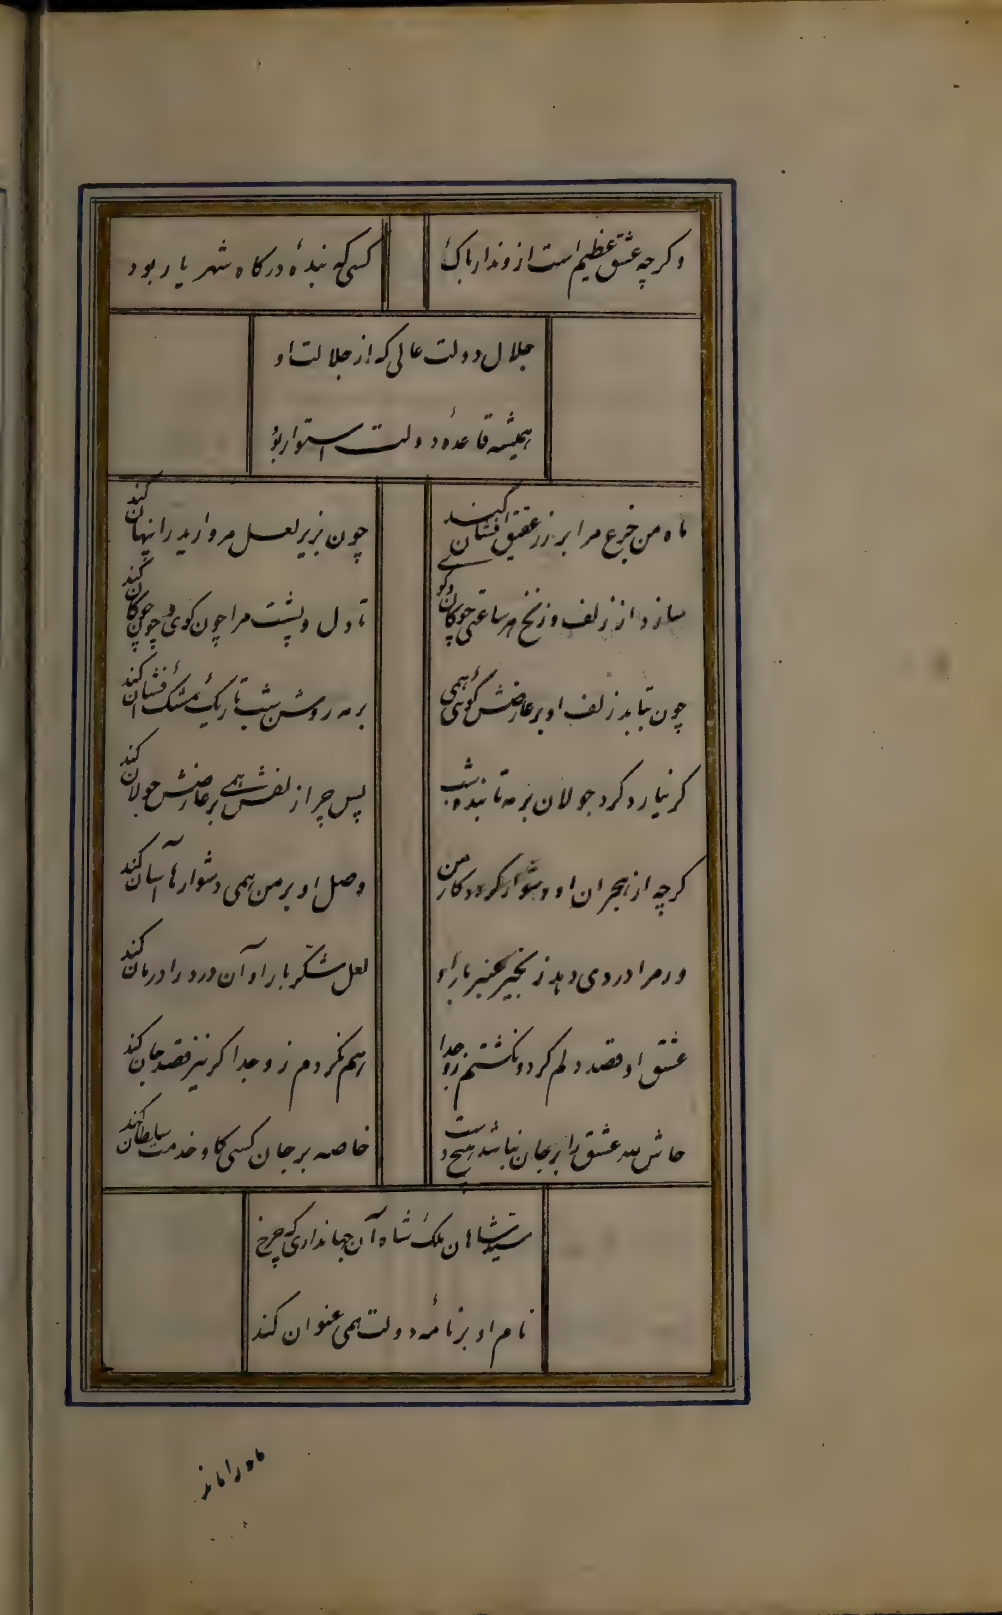 وکرچه عشق عظیم است ازو ندارد باک
کسی که بندهٔ درکاه شهریار بود
جلال دولت عالی که از جلالت او
همیشه قاعدهٔ دولت استوار بود
ماه من جزع مرا بر زر عقیق افشان کند
چون بزیر لعل مروارید را پنهان کند
سازد از زلف و زنخ هر ساعتی چوکان و کوی
تا دل و پشت مرا چون کوی و چون چوکان کند
چون بتابد زلف او بر عارضش کوئی همی
بر مه روشن شب تاریک مشک افشان کند
کر نیارد کرد جولان بر مه تابنده شب
پس چرا زلفش همی بر عارضش جولان کند
کرچه از هجران او دشوار کردد کار من
وصل او بر من همی دشوارها آسان کند
ور مرا دردی دهد زنجیر عنبر بار او
لعل شکر بار او آن درد را درمان کند
عشق او قصد دلم کرد و نکشتم زو جدا
هم نکردم زو جدا کر نیز قصد جان کند
حاش لله عشق را بر جان نباشد هیچ دست
خاصه بر جان کسی کاو خدمت سلطان کند
سید شاهان ملک شاه آن جهانداری که چرخ
نام او بر نامهٔ دولت همی عنوان کند